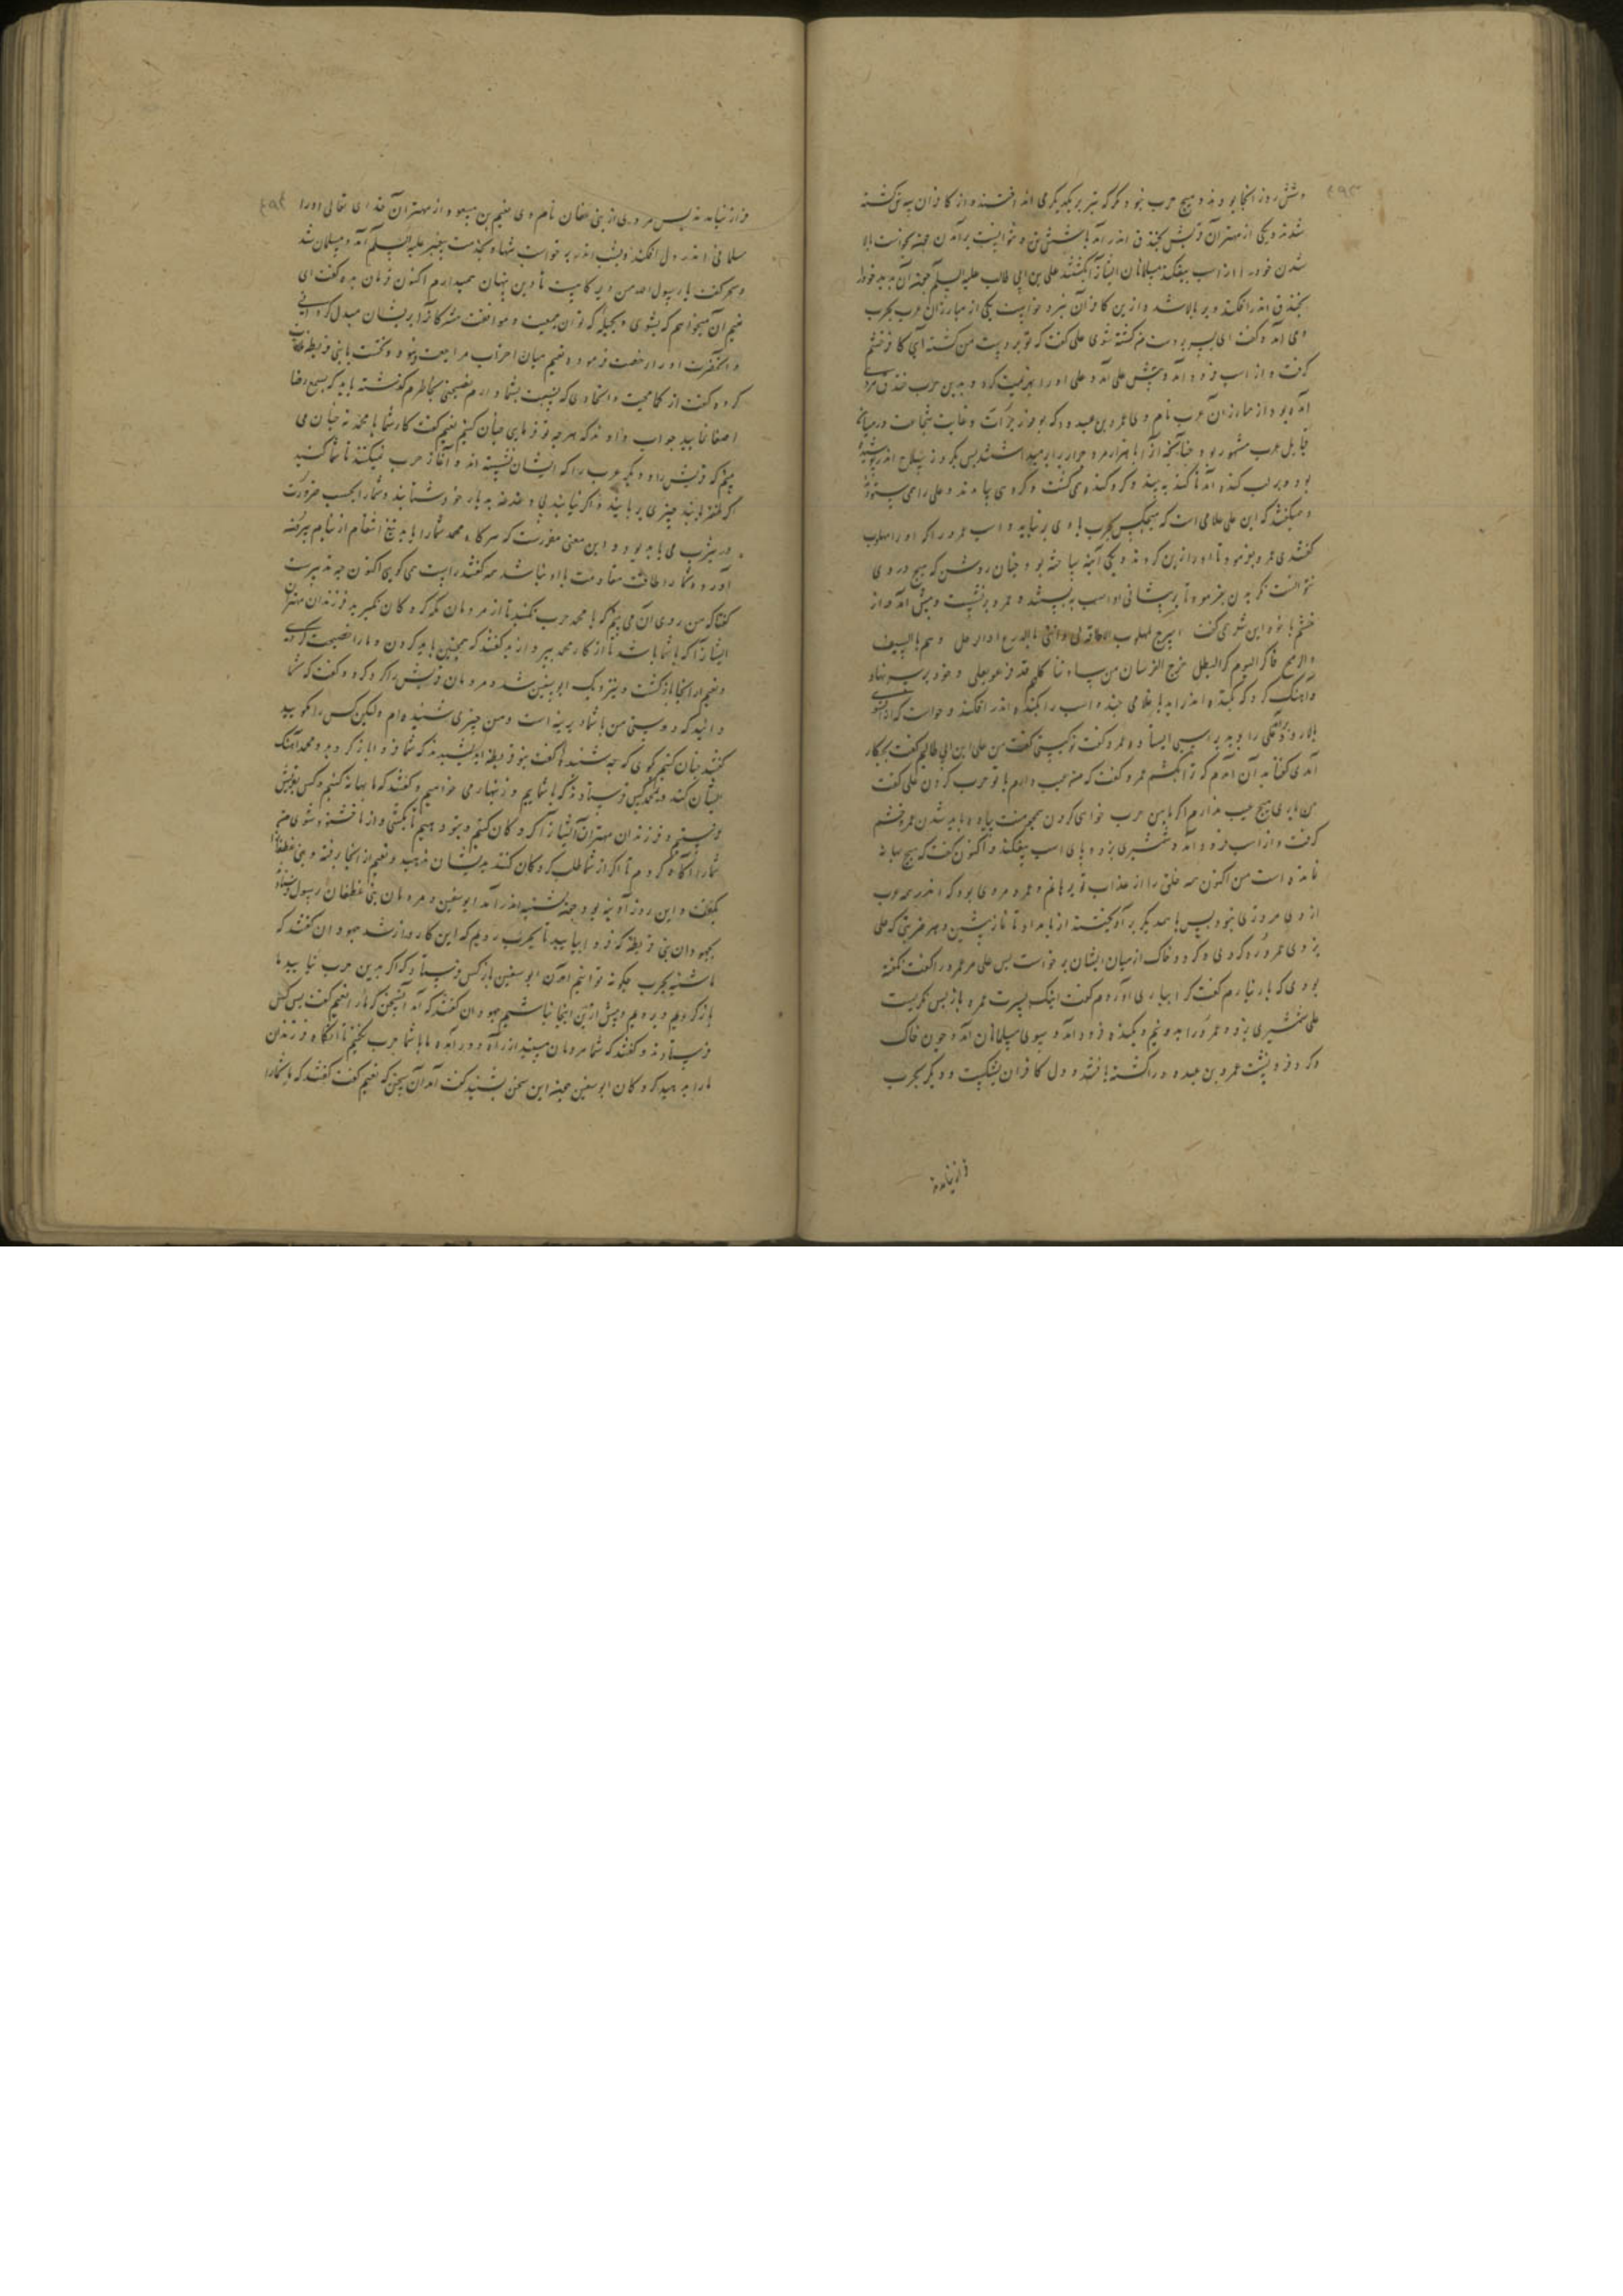 و شش روز آنجا بودند و هیچ حرب نبود مگر که تیر بر یکدیگر می انداختند و از کافران سه تن کشته
شدند و یکی از مهتران قریش بخندق اندر آمد با شش تن و نتوانست برآمدن چون خواست بالا
شدن خود را از اسب بیفکند مسلمانان ایشانرا بکشتند علی بن ابی طالب علیه السلم چون آن بدید خود را
بخندق اندر افکند و بر بالا شد و ازین کافران نبرد خواست یکی از مبارزان عرب بحرب
وی آمد و گفت ای پسر بدست من کشته شوی علی گفت که تو بدست من کشته آیی کافر خشم
گرفت و از اسب فرود آمد و پیش علی آمد و علی او را بهزیمت کرد و بدین حرب خندق مردی
آمده بود از مبارزان عرب نام وی عمرو بن عبدود که بوفور جرأت و غایت شجاعت در میان
قبایل عرب مشهور بود چنانچه او را با هزار مرد برابر میداشتند پس بکروز سلاح اندر پوشیده
بود و بر لب کنده آمد تا کنده ببیند و گرد کنده می گشت و گروهی پیاده بودند و علی را می ستودند
و میگفتند که این علی غلامی است که هیچکس بحرب با وی بر نیاید و اسب عمرو را که او را مهلوب
گفتندی عمرو بفرمود تا او را زین کردند و یکی آینه ساخته بود چنان روشن که هیچ در وی
نتوانست نگریدن بفرمود تا بر پیشانی او اسب ببستند و عمرو برنشست و پیش آمد و از
خشم با خود این شعر می گفت اسرج لمهلوب
والرمح فاکر الیوم کر البطل
و آهنگ کرد که بکنده اندر آید با غلامی چند و اسب را بکنده اندر افکند و خواست که از آنسوی
بالا رود علی را دید بر اسبی ایستاده عمرو گفت تو کیستی گفت من علی ابن ابی طالبم گفت بچکار
آمدی گفتا بدان آمدم که ترا بکشم عمرو گفت که من عیب دارم با تو حرب کردن علی گفت
من باری هیچ عیب ندارم اگر با من حرب خواهی کردن همچو منت پیاده باید شدن عمرو خشم
گرفت و از اسب فرود آمد و شمشیری بزد و پای اسب بیفکند و اکنون گفت که هیچ بهانه
نمانده است من اکنون همه خلق را از عذاب تو برهانم و عمرو مردی بود که اندر همه عرب
از وی مردتری نبود پس با همدیگر برآویختند از بامداد تا نماز پیشین و هر ضربتی که علی
بزدی عمرو رد کردی و گرد و خاک از میان ایشان برخواست پس علی مر عمرو را گفت نگفته
بودی که یار نیارم گفت کرا بیاری آوردم گفت اینک پسرت عمرو باز پس نگریست
علی شمشیری بزد و عمرو را بدو نیم و بکنده فرود آمد و سوی مسلمانان آمد و چون خاک
و گرد فرو نشست عمرو بن عبدود را کشته یافتند و دل کافران بشکست و دیگر بحرب
فراز نیامدند
۴۹۴
فراز نیامدند پس مردی از بنی غطفان نام وی نعیم بن مسعود از مهتران خدای تعالی او را
سلامی اندر دل افکند و بشب اندر برخواست تنها و بخدمت پیغمبر علیه السلم آمد و مسلمان شد
و سحر گفت یا رسول الله من دیر گاهیست تا دین پنهان همیدارم اکنون فرمان بده گفت ای
نعیم آن میخواهم که بشوی و بحیله که توان جمعیت و موافقت مشرکانرا پریشان مبدل کردانی
و آنحضرت او را رخصت فرموده و نعیم میان احزاب مراجعت نمود و نخست با بنی قریظه
کرده گفت از کمال محبت و اتحادی که بنسبت شما دارم نصیحتی بخاطرم گذشته باید که بسمع رضا
اصغا نمایید جواب دادند که هر چه تو فرمایی چنان کنیم نعیم گفت کار شما با محمد نه چنان می
بینم که قریش را و دیگر عرب را که ایشان نشسته اند و آغاز حرب نمیکنند تا شما کنید
اگر ظفر یابند چیزی بربایند و اگر نیابند بی دغدغه بدیار خود شتابند و شما را بحسب ضرورت
در یثرب می باید بود و این معنی مقررست که هرگاه محمد شما را باید تیغ انتقام از نیام بیرون
آورد و شما را طاقت مقاومت با او نباشد همه گفتند راست می گویی اکنون چه تدبیرست
گفتا که من روی آن می بینم که با محمد حرب نکنید تا از مردمان مکه گروکان نگیرید فرزندان مهتران
ایشانرا که با شما باشند تا از کار محمد بپردازند گفتند که همچنین باید کردن و ما را نصیحت کردی
و نعیم از آنجا بازگشت و بنزدیک ابو سفین شد و مردمان قریش را گرد کرد و گفت که شما
دانید که دوستی من با شما دیرینه است و من چیزی شنیده ام ولیکن کس را مگویید
گفتند چنان کنیم بگوی که چه شنیدی گفت بنو قریظه اندیشیدند که شما فردا باز گردید و محمد آهنگ
ایشان کند و بمحمد کس فرستادند که ما با شماییم و زنهار می خواهیم و گفتند که ما بهانه کنیم و کس بقریش
فرستیم و فرزندان مهتران ایشانرا گروکان کنیم و بتو دهیم تا بکشی و از ما خشنود شوی من
شما را آگاه کردم تا اگر از شما طلب گروکان کنند بدیشان ندهید و نعیم از آنجا رفته و بنی غطفان را
بگفت و این روز آدینه بود چون شب اندر آمد ابوسفین و مردمان بنی غطفان رسول فرستادند
بجهودان بنی قریظه که فردا بیایید تا بحرب رویم که این کار دراز شد جهودان گفتند که
ما شنبه بحرب چگونه توانیم آمدن ابو سفین باز کس فرستاد که اگر بدین حرب نیایید ما
بازگردیم و برویم و بیش ازین اینجا نباشیم جهودان گفتند که آمد آن سخن که ما را نعیم گفت پس کس
فرستادند و گفتند که شما مردمان سپید از راه دور آمده ما با شما حرب نکنیم تا آنگاه فرزندان
ما را بدهید گروکان ابو سفین چون این سخن بشنید گفت آمد آن سخن که نعیم گفت گفتند که ما شما را
۴۹۵